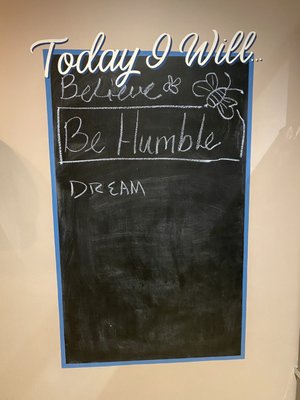 Today I Will...
Believe
Be Humble
DREAM